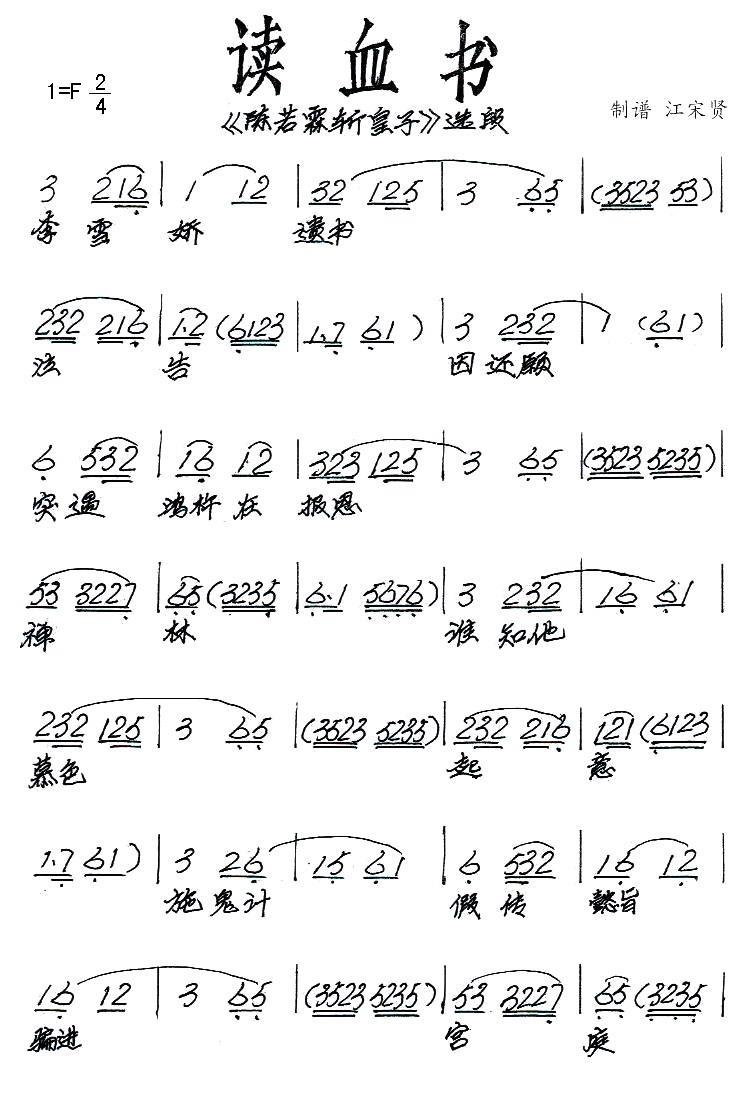 读血书
1=F 2/4
《陈若霖斩皇子》选段
制谱 江宋贤
3 216 | 1 12 | 32 125 | 3 65 | (3523 53) |
李 雪 娇 遗书
232 216 | 1·2 (6123 | 1·7 61) | 3 232 | 1 (61) |
泣 告 因 还愿
6 532 | 16 12 | 323 125 | 3 65 | (3523 5235) |
突遇 鸿杵在 报恩
53 3227 | 65 (3235 | 6·1 5676) | 3 232 | 16 61 |
禅 林 谁 知他
232 125 | 3 65 | (3523 5235) | 232 216 | 121 (6123 |
慕色 起 意
1·7 61) | 3 26 | 15 61 | 6 532 | 16 12 |
施鬼计 假传 懿旨
16 12 | 3 65 | (3523 5235) | 53 3227 | 65 (3235 |
骗进 宫 庭